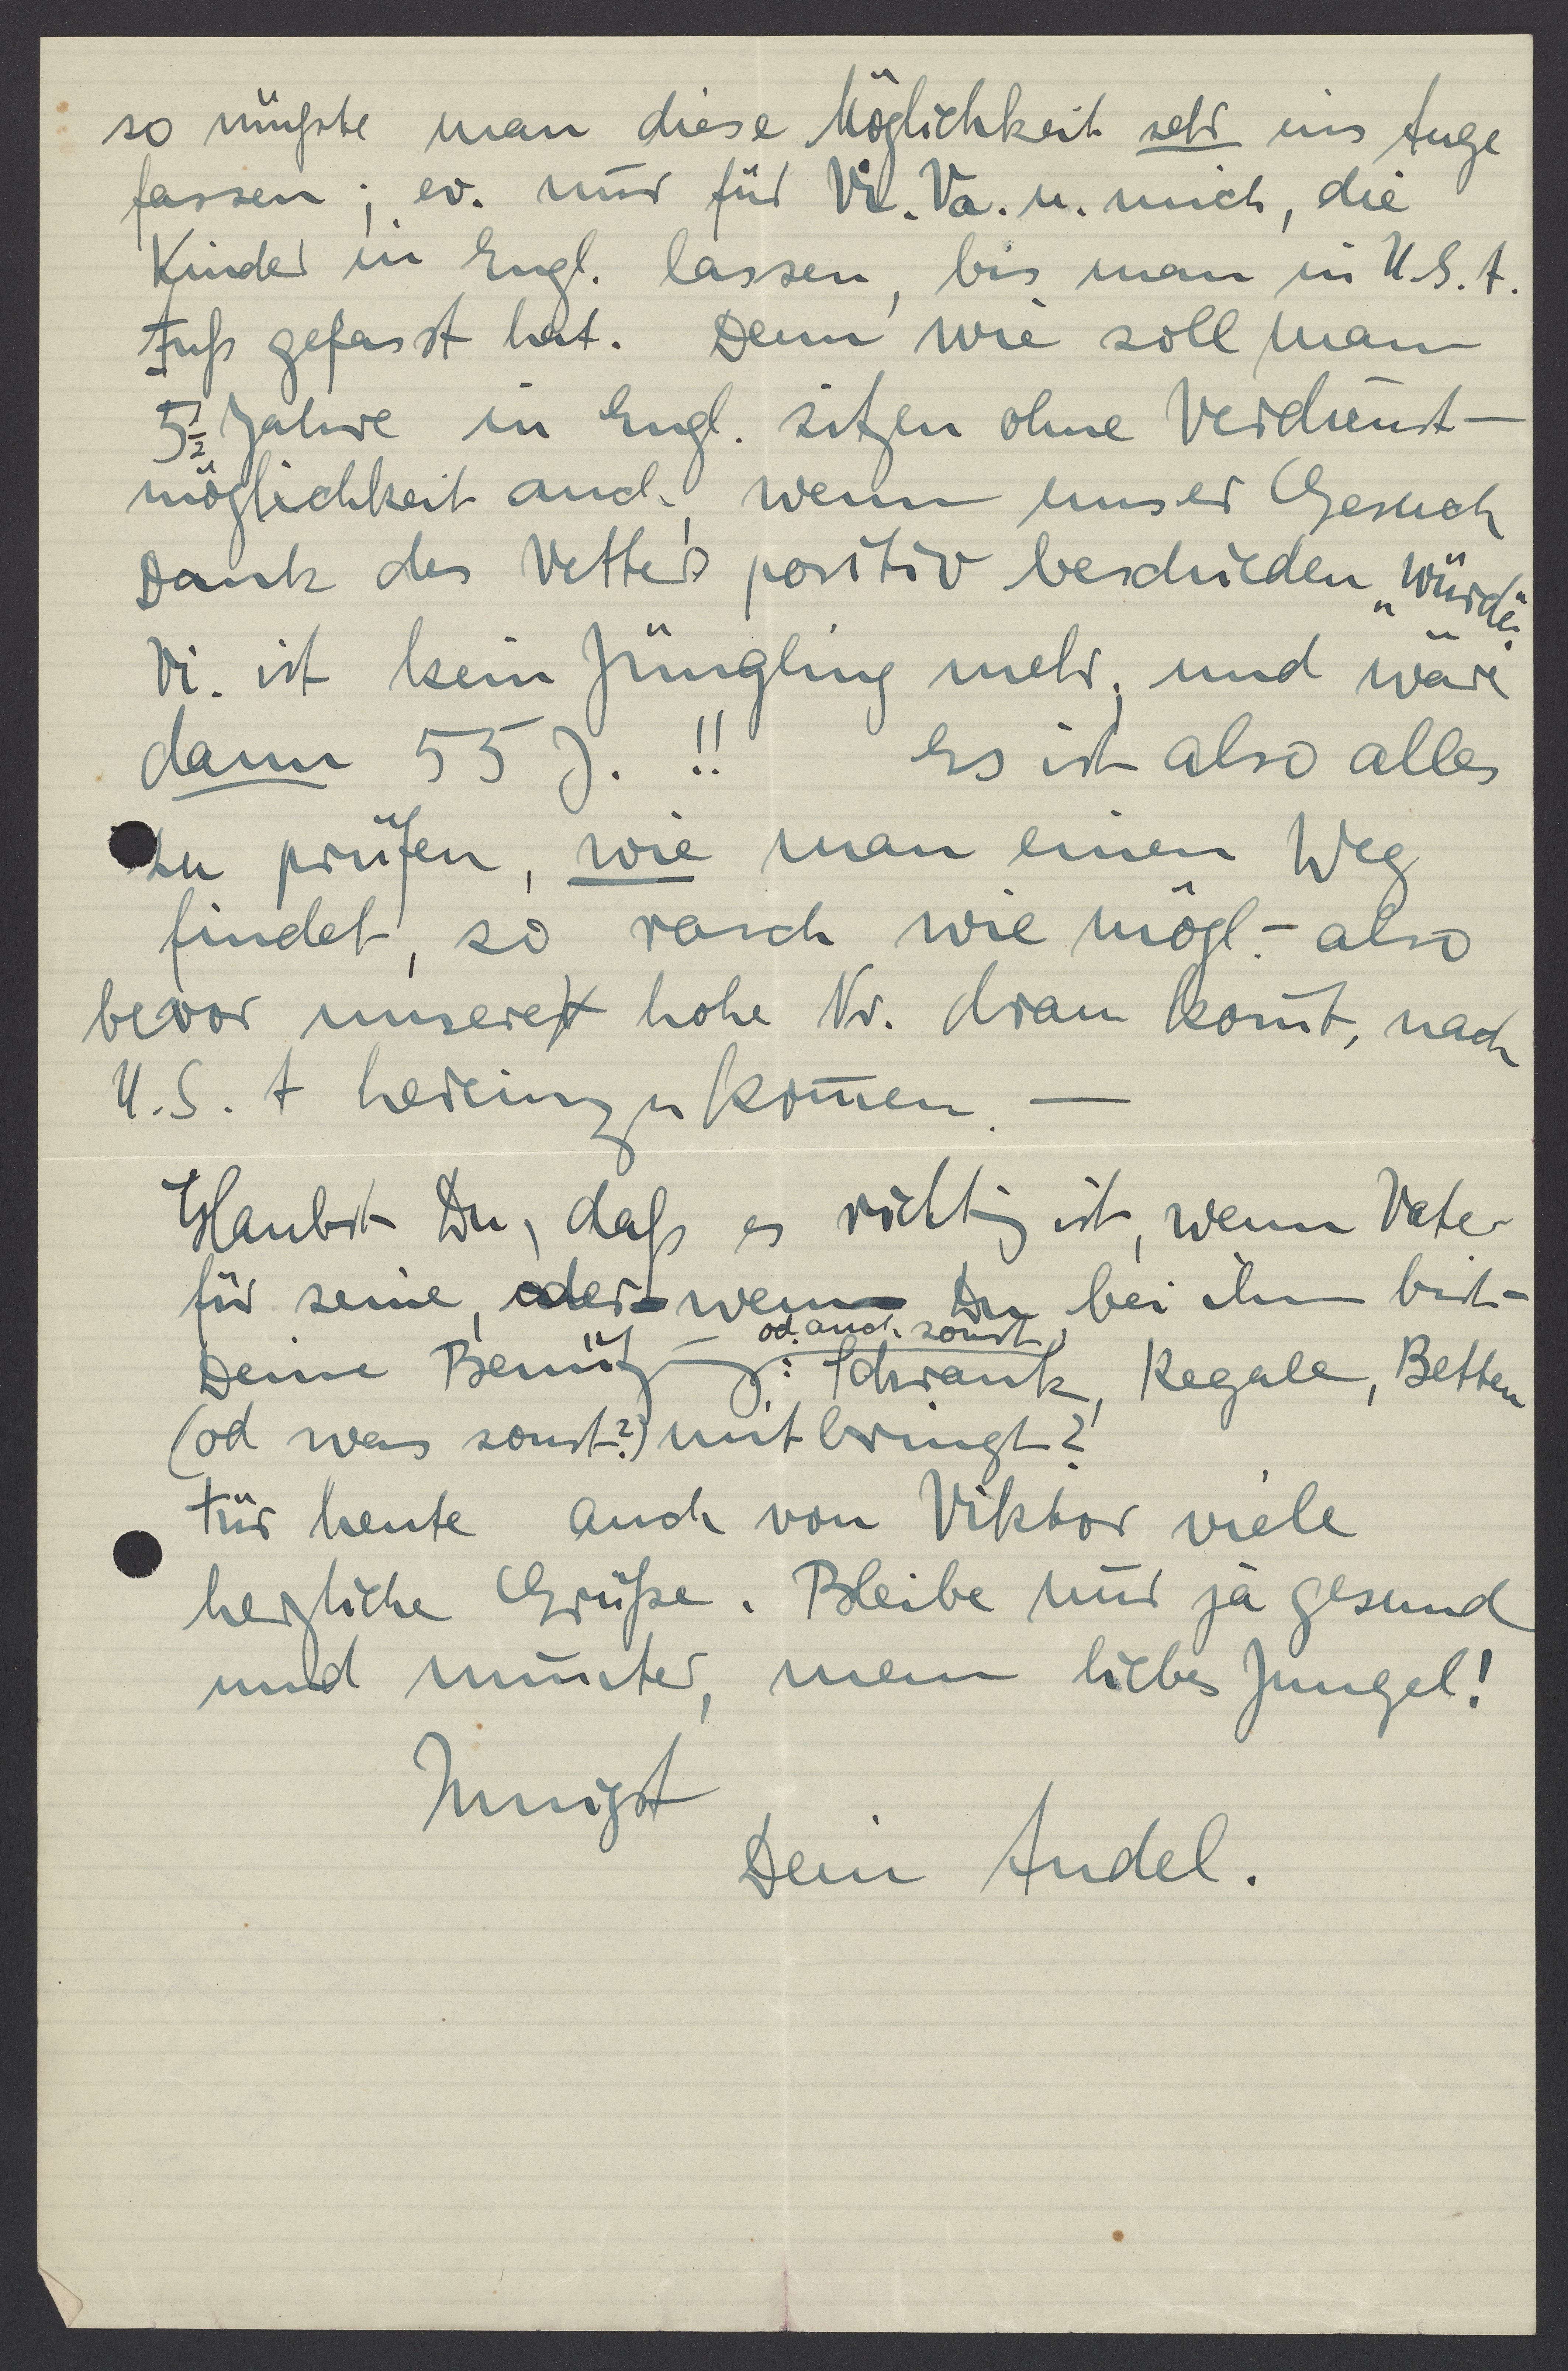 so müßte man diese Möglichkeit sehr ins Auge
fassen; ev. nur für Vi. Va. u. mich, die
Kinder in Engl. lassen, bis man in U.S.A.
Fuß gefasst hat. Denn wie soll man
5½ Jahre in Engl. sitzen ohne Verdienst-
möglichkeit auch, wenn unser Gesuch
Dank des Vetters positiv beschieden „würde".
Vi. ist kein Jüngling mehr, und wäre
dann 55 J. !! Es ist also alles
zu prüfen, wie man einen Weg
findet, so rasch wie mögl. - also
bevor unsere hohe Nr. dran kom̄t, nach
U.S.A hereinzukom̄en. —
Glaubst Du, daß es richtig ist, wenn Vater
für seine, oder - wenn Du bei ihm bist -
od. auch sonst
Deine Benützg: Schrank, Regale, Betten
(od was sonst?) mitbringt?
Für heute auch von Viktor viele
herzliche Grüße. Bleibe nur ja gesund
und munter, mein liebes Jungel!
Innigst
Dein Andel.